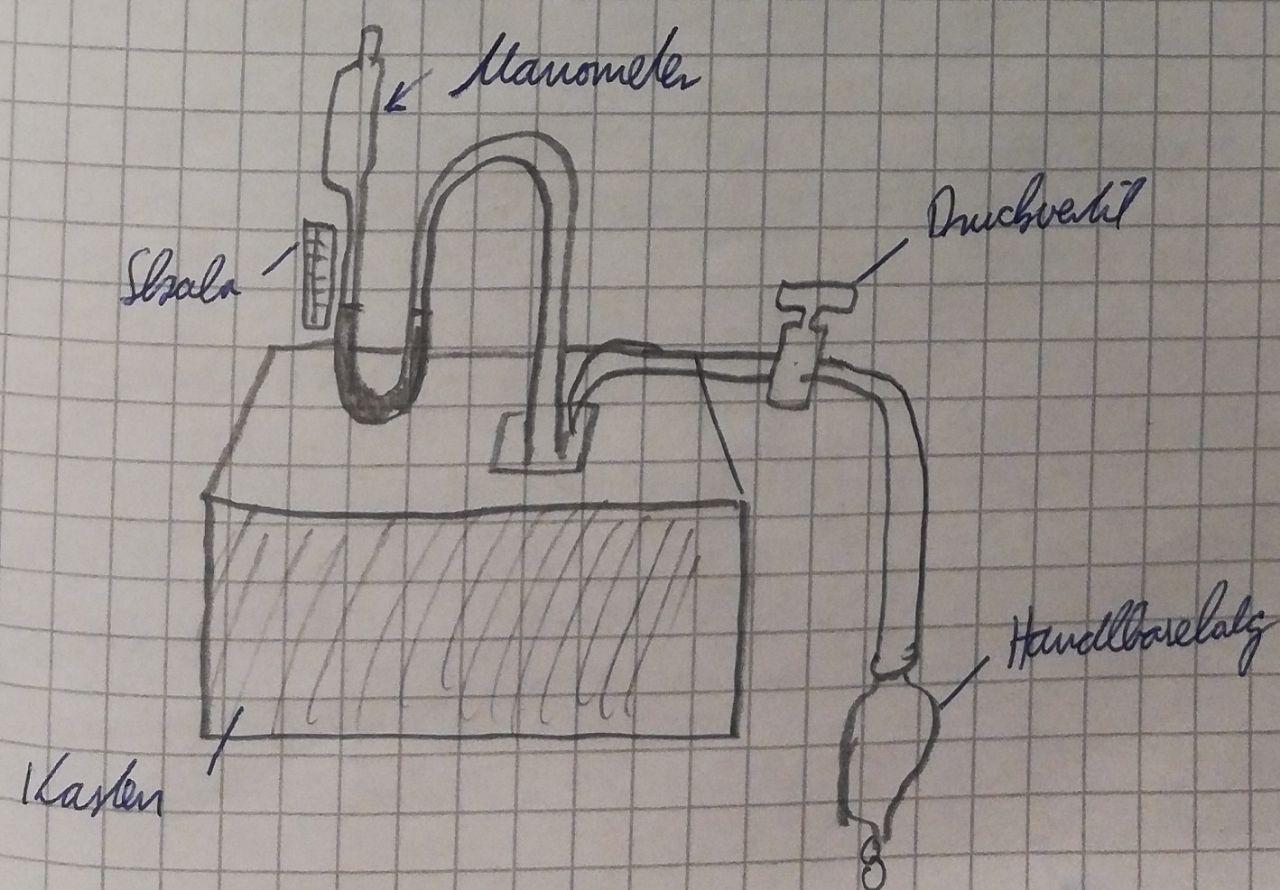 Manometer
Druckventil
Skala
Handblasebalg
Kasten